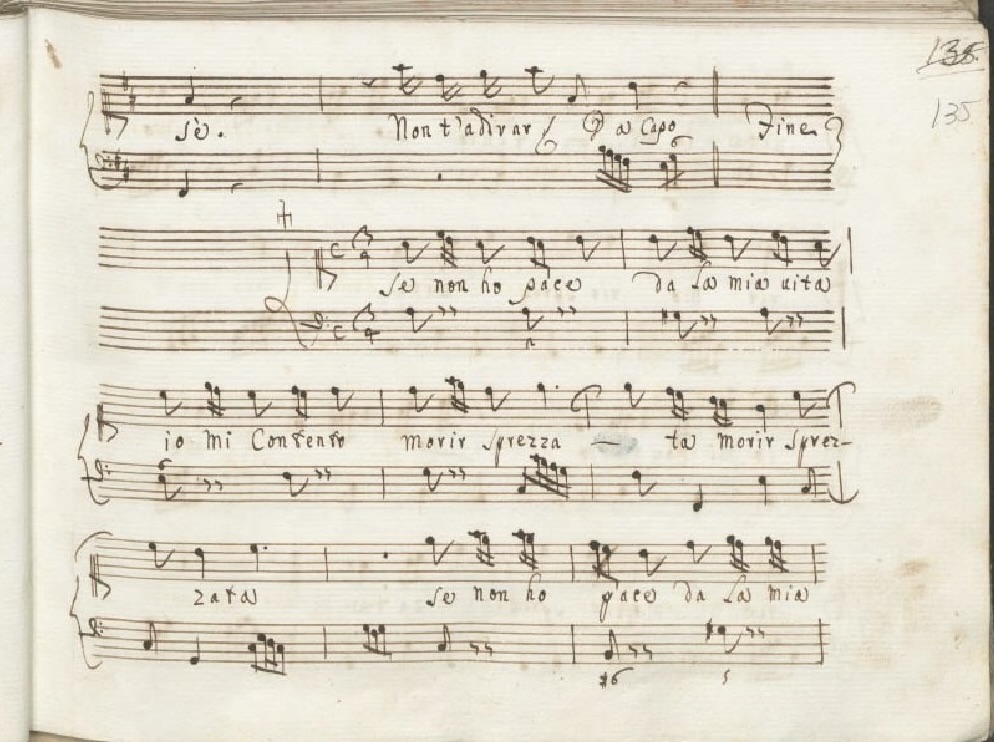 135
135
sè. Non t'adirar Da Capo Fine
6
C
se non ho pace da la mia vita
C
io mi Contento morir sprezza - ta morir sprez-
zata se non ho pace da la mia
#6 5